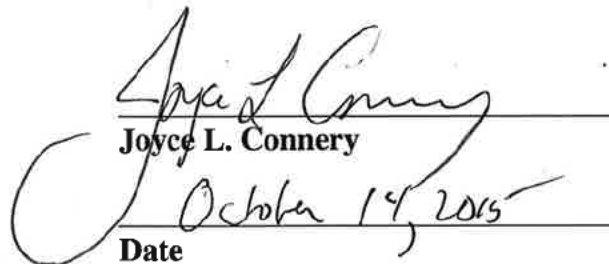 Joyce L Connery
Joyce L. Connery
October 14, 2015
Date